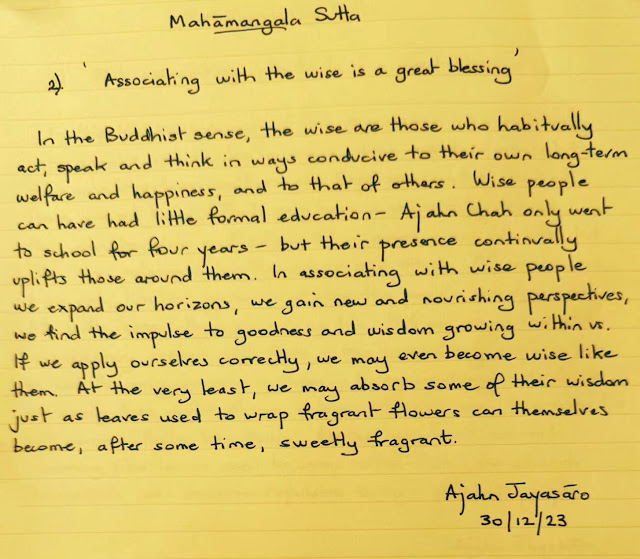 Mahāmangala Sutta
2) 'Associating with the wise is a great blessing'
In the Buddhist sense, the wise are those who habitually
act, speak and think in ways conducive to their own long-term
welfare and happiness, and to that of others. Wise people
can have had little formal education – Ajahn Chah only went
to school for four years – but their presence continually
uplifts those around them. In associating with wise people
we expand our horizons, we gain new and nourishing perspectives,
we find the impulse to goodness and wisdom growing within us.
If we apply ourselves correctly, we may even become wise like
them. At the very least, we may absorb some of their wisdom
just as leaves used to wrap fragrant flowers can themselves
become, after some time, sweetly fragrant.
Ajahn Jayasāro
30/12/23